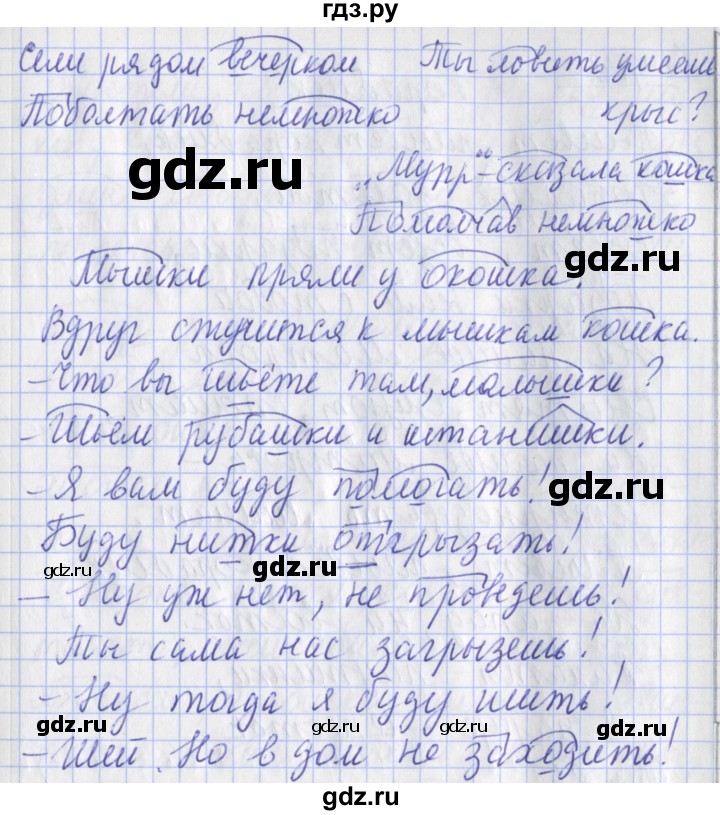 гдз.ру
Сели рядом вечерком
Поболтать немножко
Ты ловить умеешь
крыс?
„Мурр“- сказала кошка
Помолчав немножко
gdz.ru
gdz.ru
Мышки пряли у окошка.
Вдруг стучится к мышкам кошка.
- Что вы шьёте там, малышки?
- Шьём рубашки и штанишки.
- Я вам буду помогать!
gdz.ru
Буду нитки отгрызать!
gdz.ru
gdz.ru
- Ну уж нет, не проведешь!
Ты сама нас загрызешь!
- Ну тогда я буду шить!
gdz.ru
gdz.ru
gdz.ru
- Шей. Но в дом не заходить!
gdz.ru